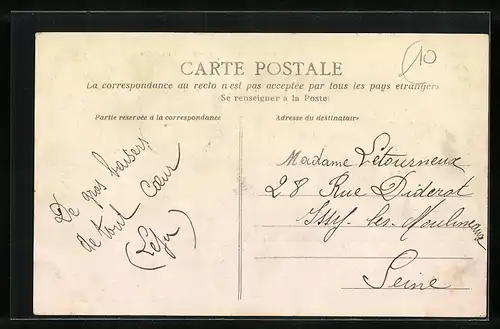 10
CARTE POSTALE
La correspondance au recto n'est pas acceptée par tous les pays étrangers
(Se renseigner à la Poste)
Partie réservée à la correspondance
Adresse du destinataire
De gros baisers
de tout Cœur
Madame Létourneux
28 Rue Diderot
Issy-les-Moulineaux
Seine